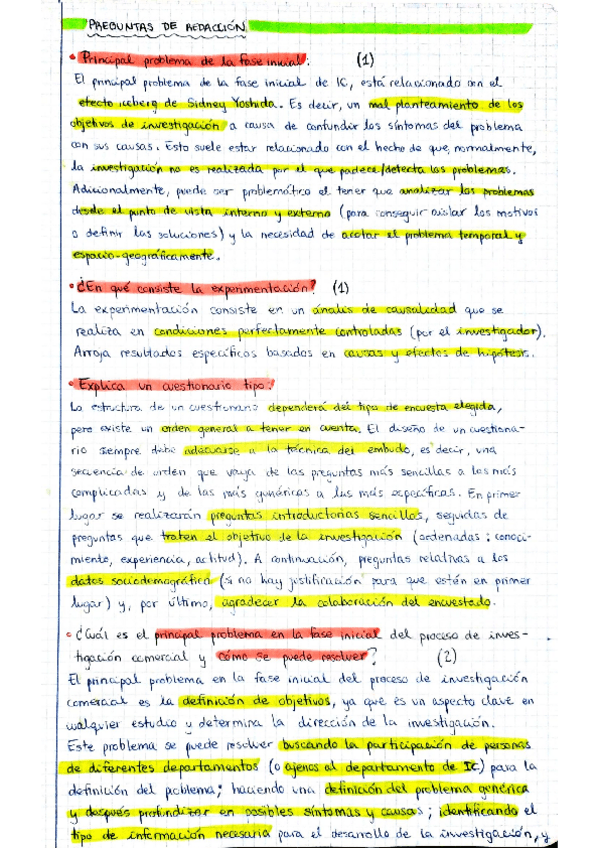 PREGUNTAS DE REDACCIÓN.
• Principal problema de la fase inicial. (1)
El principal problema de la fase inicial de IC, está relacionado con el
efecto iceberg de Sidney Yoshida. Es decir, un mal planteamiento de los
objetivos de investigación a causa de confundir los síntomas del problema
con sus causas. Esto suele estar relacionado con el hecho de que, normalmente,
la investigación no es realizada por el que padece/detecta los problemas.
Adicionalmente, puede ser problemático el tener que analizar los problemas
desde el punto de vista interno y externo (para conseguir aislar los motivos
o definir las soluciones) y la necesidad de acotar el problema temporal y
espacio-geográficamente.
• ¿En qué consiste la experimentación? (1)
La experimentación consiste en un análisis de causalidad que se
realiza en condiciones perfectamente controladas (por el investigador).
Arroja resultados específicos basados en causas y efectos de hipótesis.
• Explica un cuestionario tipo:
La estructura de un cuestionario dependerá del tipo de encuesta elegida,
pero existe un orden general a tener en cuenta. El diseño de un cuestiona-
rio siempre debe adecuarse a la técnica del embudo, es decir, una
secuencia de orden que vaya de las preguntas más sencillas a las más
complicadas y de las más genéricas a las más específicas. En primer
lugar se realizarán preguntas introductorias sencillas, seguidas de
preguntas que traten el objetivo de la investigación (ordenadas: conoci-
miento, experiencia, actitud). A continuación, preguntas relativas a los
datos sociodemográfica (si no hay justificación para que estén en primer
lugar) y, por último, agradecer la colaboración del encuestado.
• ¿Cuál es el principal problema en la fase inicial del proceso de inves-
tigación comercial y cómo se puede resolver? (2)
El principal problema en la fase inicial del proceso de investigación
comercial es la definición de objetivos, ya que es un aspecto clave en
cualquier estudio y determina la dirección de la investigación.
Este problema se puede resolver buscando la participación de personas
de diferentes departamentos (o ajenos al departamento de IC) para la
definición del problema; haciendo una definición del problema genérica
y después profundizar en posibles síntomas y causas; identificando el
tipo de información necesaria para el desarrollo de la investigación, y